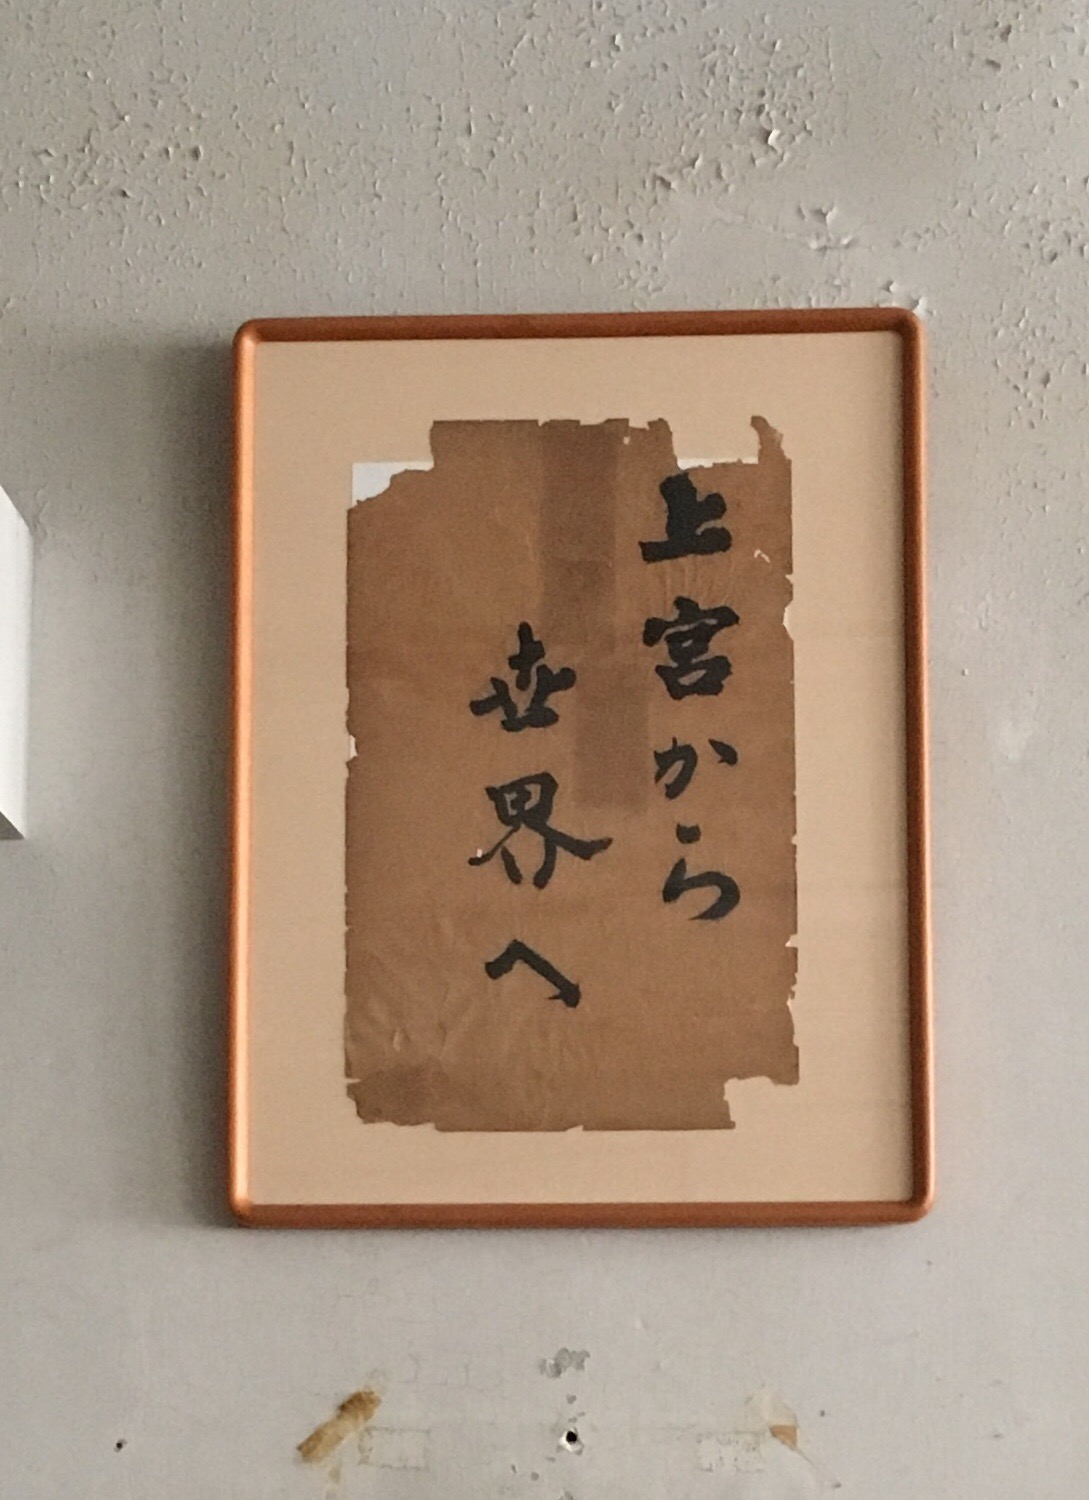 上宮から
世界へ